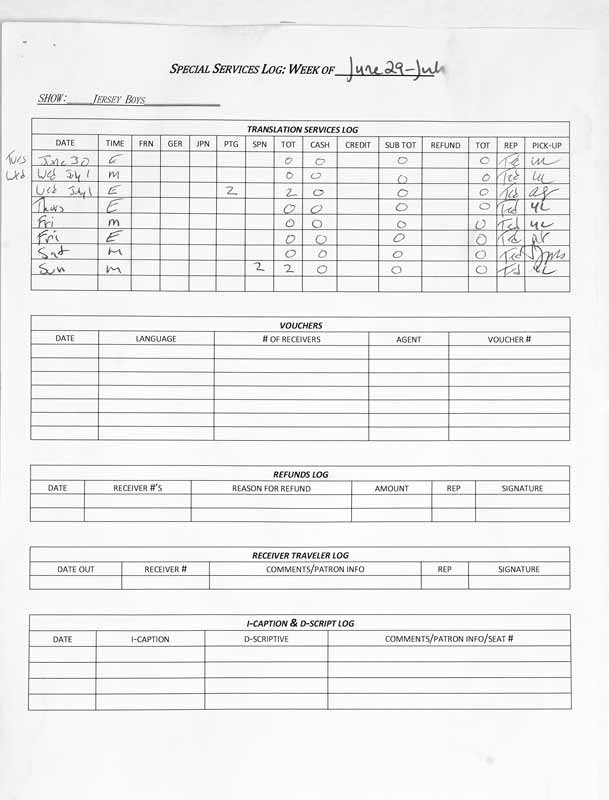 SPECIAL SERVICES LOG: WEEK OF June 29-July
SHOW: JERSEY BOYS
TRANSLATION SERVICES LOG
DATE TIME FRN GER JPN PTG SPN TOT CASH CREDIT SUB TOT REFUND TOT REP PICK-UP
Tues June 30 E 0 0 0 0 Ted
Wed Wed July 1 M 0 0 0 0 Ted
Wed July 1 E 2 2 0 0 0 Ted
Thurs E 0 0 0 0 Ted
Fri M 0 0 0 0 Ted
Fri E 0 0 0 0 Ted
Sat M 0 0 0 0 Ted
Sun M 2 2 0 0 0 Ted
VOUCHERS
DATE LANGUAGE # OF RECEIVERS AGENT VOUCHER #
REFUNDS LOG
DATE RECEIVER #'S REASON FOR REFUND AMOUNT REP SIGNATURE
RECEIVER TRAVELER LOG
DATE OUT RECEIVER # COMMENTS/PATRON INFO REP SIGNATURE
I-CAPTION & D-SCRIPT LOG
DATE I-CAPTION D-SCRIPTIVE COMMENTS/PATRON INFO/SEAT #